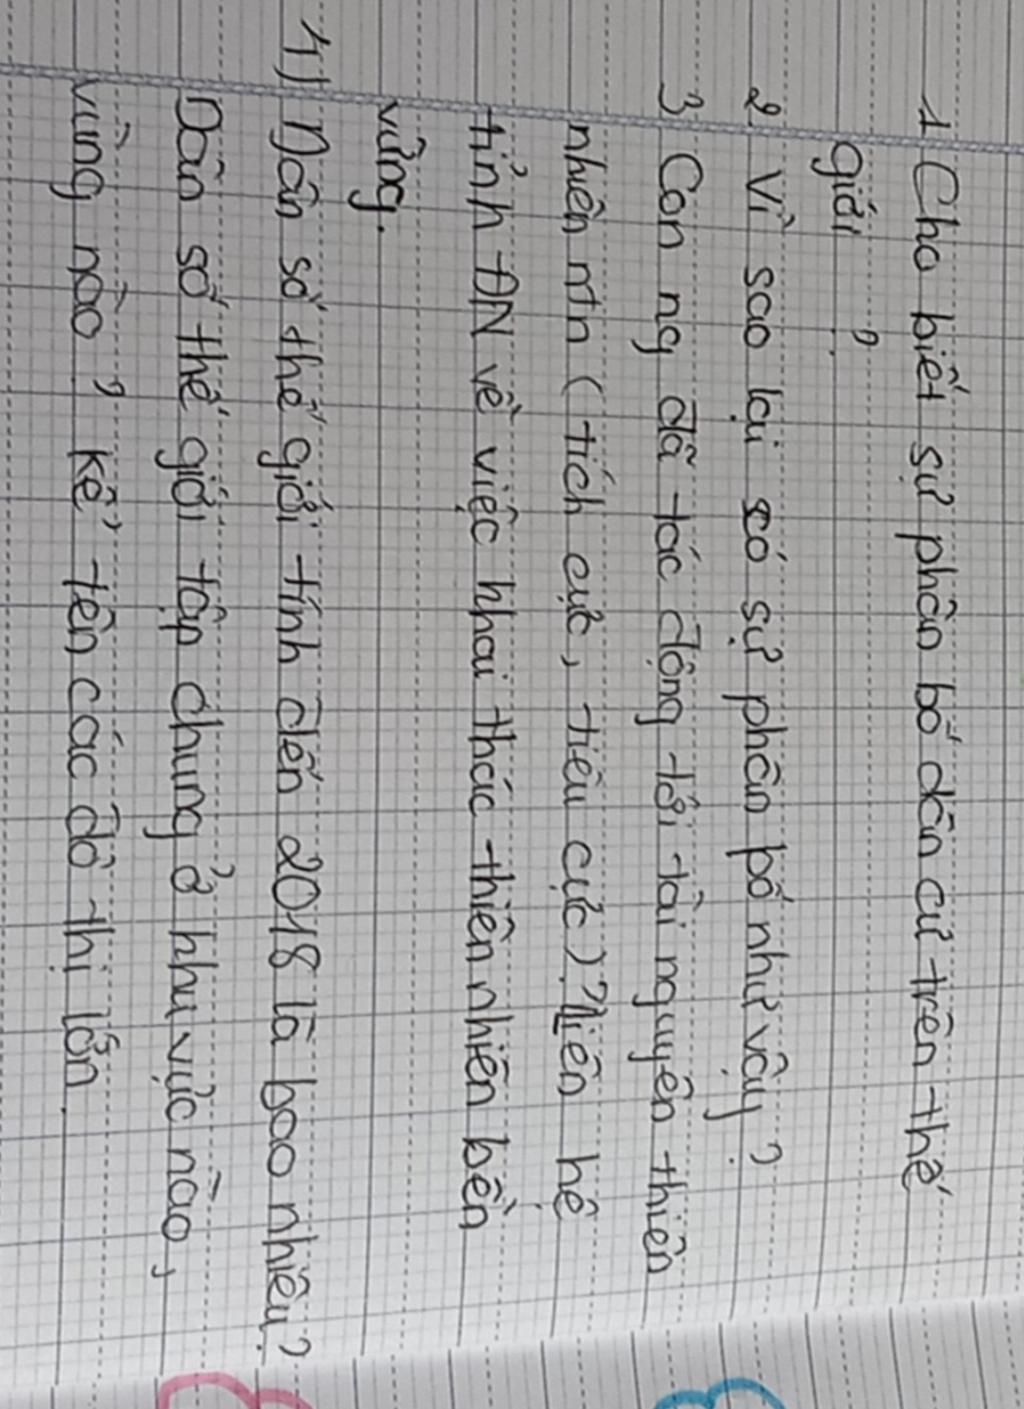 1 Cho biết sự phân bố dân cư trên thế
giới ?
2 Vì sao lại có sự phân bố như vậy ?
3 Con ng đã tác động tới tài nguyên thiên
nhiên ntn ( tích cực, tiêu cực ) ? Liên hệ
tỉnh ĐN về việc khai thác thiên nhiên bền
vững.
4) Dân số thế giới tính đến 2018 là bao nhiêu ?
Dân số thế giới tập chung ở khu vực nào,
vùng nào ? kể tên các đô thị lớn.